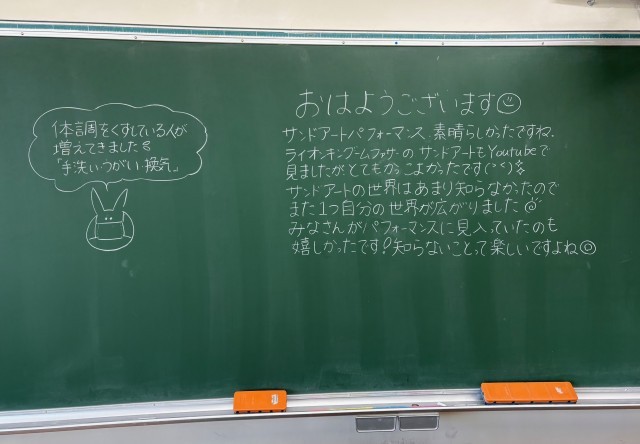 体調をくずしている人が
増えてきました
「手洗い・うがい・換気」
おはようございます
サンドアートパフォーマンス、素晴らしかったですね。
ライオンキング～ムファサ～の サンドアートもYoutubeで
見ましたがとてもかっこよかったです(^^)
サンドアートの世界はあまり知らなかったので
また1つ自分の世界が広がりました
みなさんがパフォーマンスに見入っていたのも
嬉しかったです!知らないことって楽しいですよね